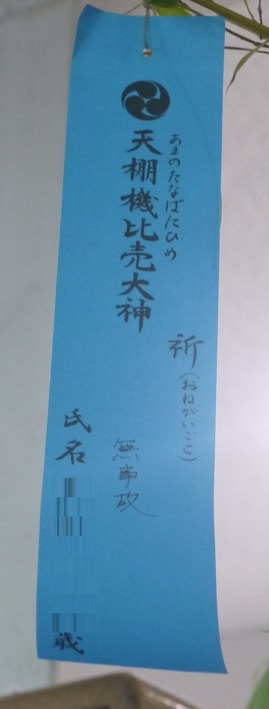 あまのたなばたひめ
天棚機比売大神
祈(おねがいごと)
無事故
氏名
歳